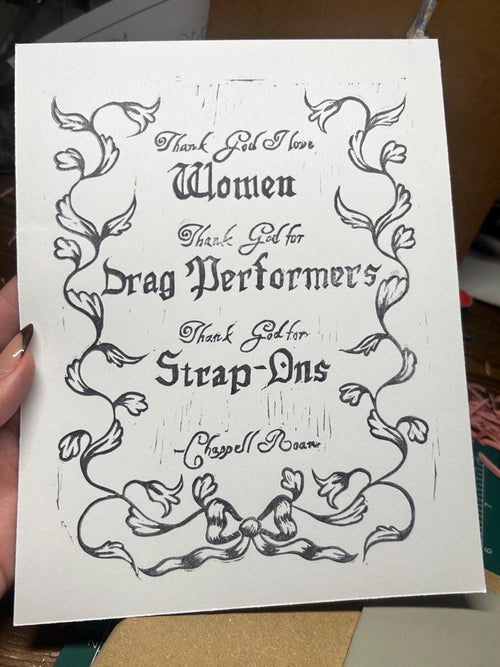 Thank God I love
Women
Thank God for
Drag Performers
Thank God for
Strap-Ons
-Chappell Roan